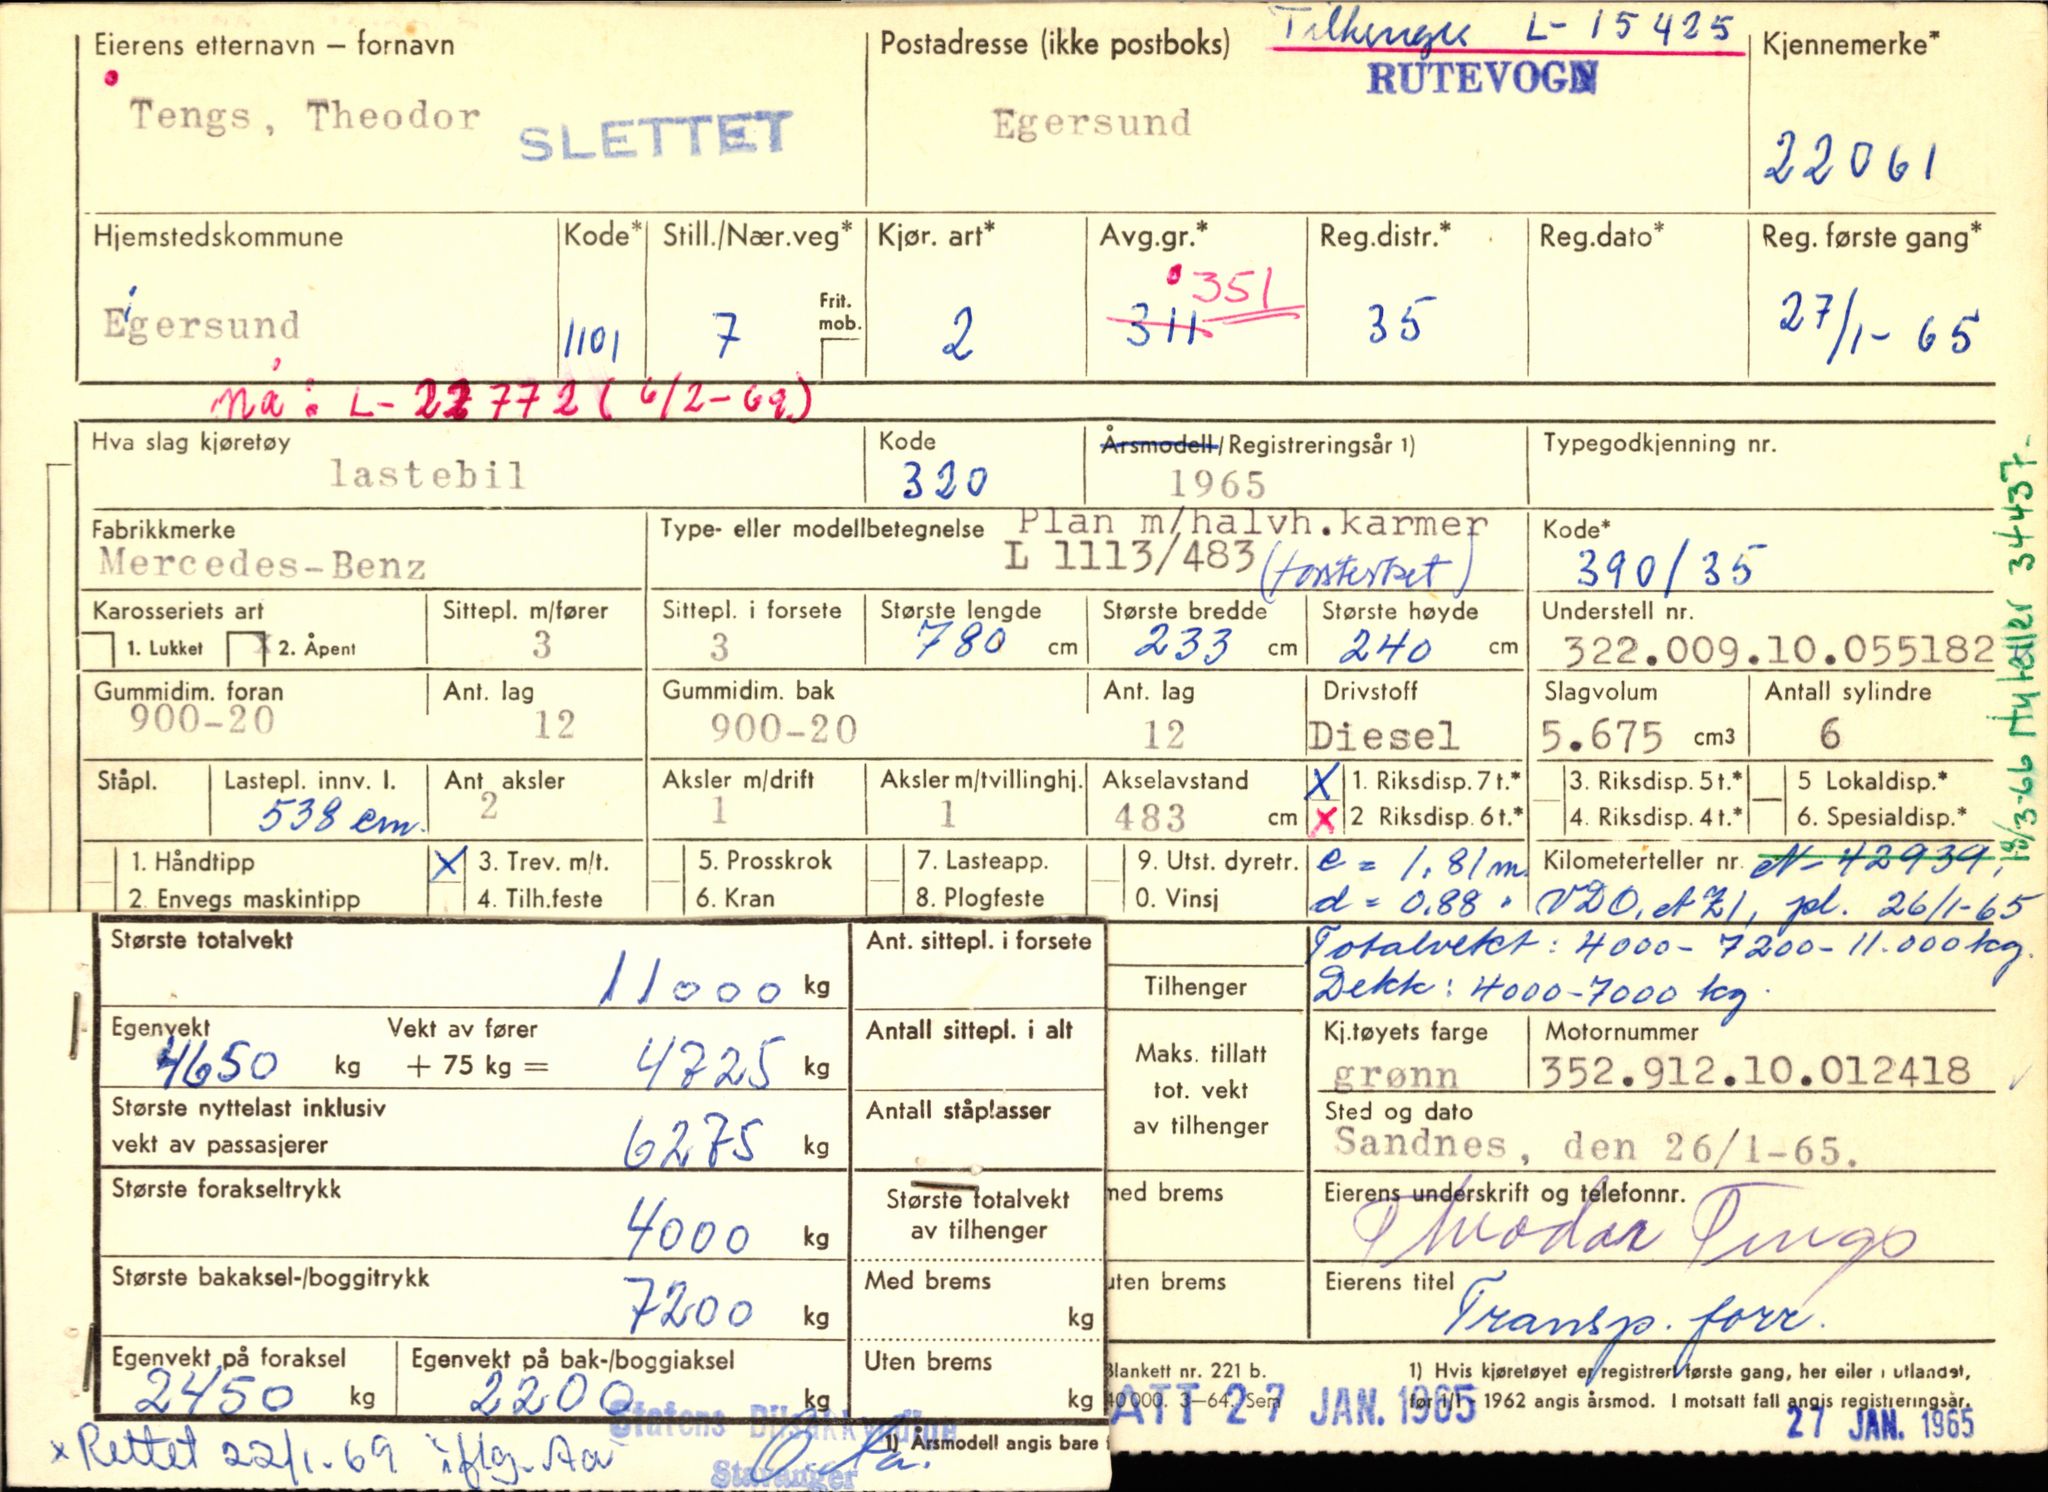 Tilhenger L-15425
Eierens etternavn – fornavn
Postadresse (ikke postboks)
Kjennemerke*
RUTEVOGN
Tengs, Theodor
SLETTET
Egersund
22061
Hjemstedskommune
Kode*
Still./Nær.veg*
Kjør. art*
Avg.gr.*
Reg.distr.*
Reg.dato*
Reg. første gang*
Egersund
1101
7
Frit. mob.
2
311 351
35
27/1-65
Nå: L-22772 (6/2-69)
Hva slag kjøretøy
lastebil
Kode
320
Årsmodell/Registreringsår 1)
1965
Typegodkjenning nr.
Fabrikkmerke
Mercedes-Benz
Type- eller modellbetegnelse
Plan m/halvh.karmer
L 1113/483 (forsterket)
Kode*
390/35
Karosseriets art
1. Lukket
x 2. Åpent
Sittepl. m/fører
3
Sittepl. i forsete
3
Største lengde
780 cm
Største bredde
233 cm
Største høyde
240 cm
Understell nr.
322.009.10.055182
Gummidim. foran
900-20
Ant. lag
12
Gummidim. bak
900-20
Ant. lag
12
Drivstoff
Diesel
Slagvolum
5.675 cm3
Antall sylindre
6
Ståpl.
Lastepl. innv. l.
538 cm.
Ant. aksler
2
Aksler m/drift
1
Aksler m/tvillinghj.
1
Akselavstand
483 cm
X 1. Riksdisp. 7 t.*
x 2 Riksdisp. 6 t.*
3. Riksdisp. 5 t.*
4. Riksdisp. 4 t.*
5 Lokaldisp.*
6. Spesialdisp.*
1. Håndtipp
2. Envegs maskintipp
X 3. Trev. m/t.
4. Tilh.feste
5. Prosskrok
6. Kran
7. Lasteapp.
8. Plogfeste
9. Utst. dyretr.
0. Vinsj
e = 1.81 m
d = 0.88 "
Kilometerteller nr. N-42939,
VDO, pl. 26/1-65
18/3-66 Ny teller 34437-
Totalvekt: 4000-7200-11.000 kg.
Dekk: 4000-7000 kg.
Største totalvekt
11000 kg
Egenvekt
4650 kg
Vekt av fører
+ 75 kg = 4725 kg
Største nyttelast inklusiv
vekt av passasjerer
6275 kg
Største forakseltrykk
4000 kg
Største bakaksel-/boggitrykk
7200 kg
Egenvekt på foraksel
2450 kg
Egenvekt på bak-/boggiaksel
2200 kg
Ant. sittepl. i forsete
Antall sittepl. i alt
Antall ståplasser
Største totalvekt
av tilhenger
Med brems
kg
Uten brems
kg
Tilhenger
Maks. tillatt
tot. vekt
av tilhenger
med brems
uten brems
Kj.tøyets farge
grønn
Motornummer
352.912.10.012418
Sted og dato
Sandnes, den 26/1-65.
Eierens underskrift og telefonnr.
Theodor Tengs
Eierens titel
Transp. forr.
Blankett nr. 221 b.
40 000. 3–64. Sem
1) Hvis kjøretøyet er registrert første gang, her eller i utlandet,
før 1/1 - 1962 angis årsmod. I motsatt fall angis registreringsår.
ATT 27 JAN. 1965
27 JAN. 1965
Statens Bilsakkyndige
Stavanger
1) Årsmodell angis bare
x Rettet 22/1-69 iflg.